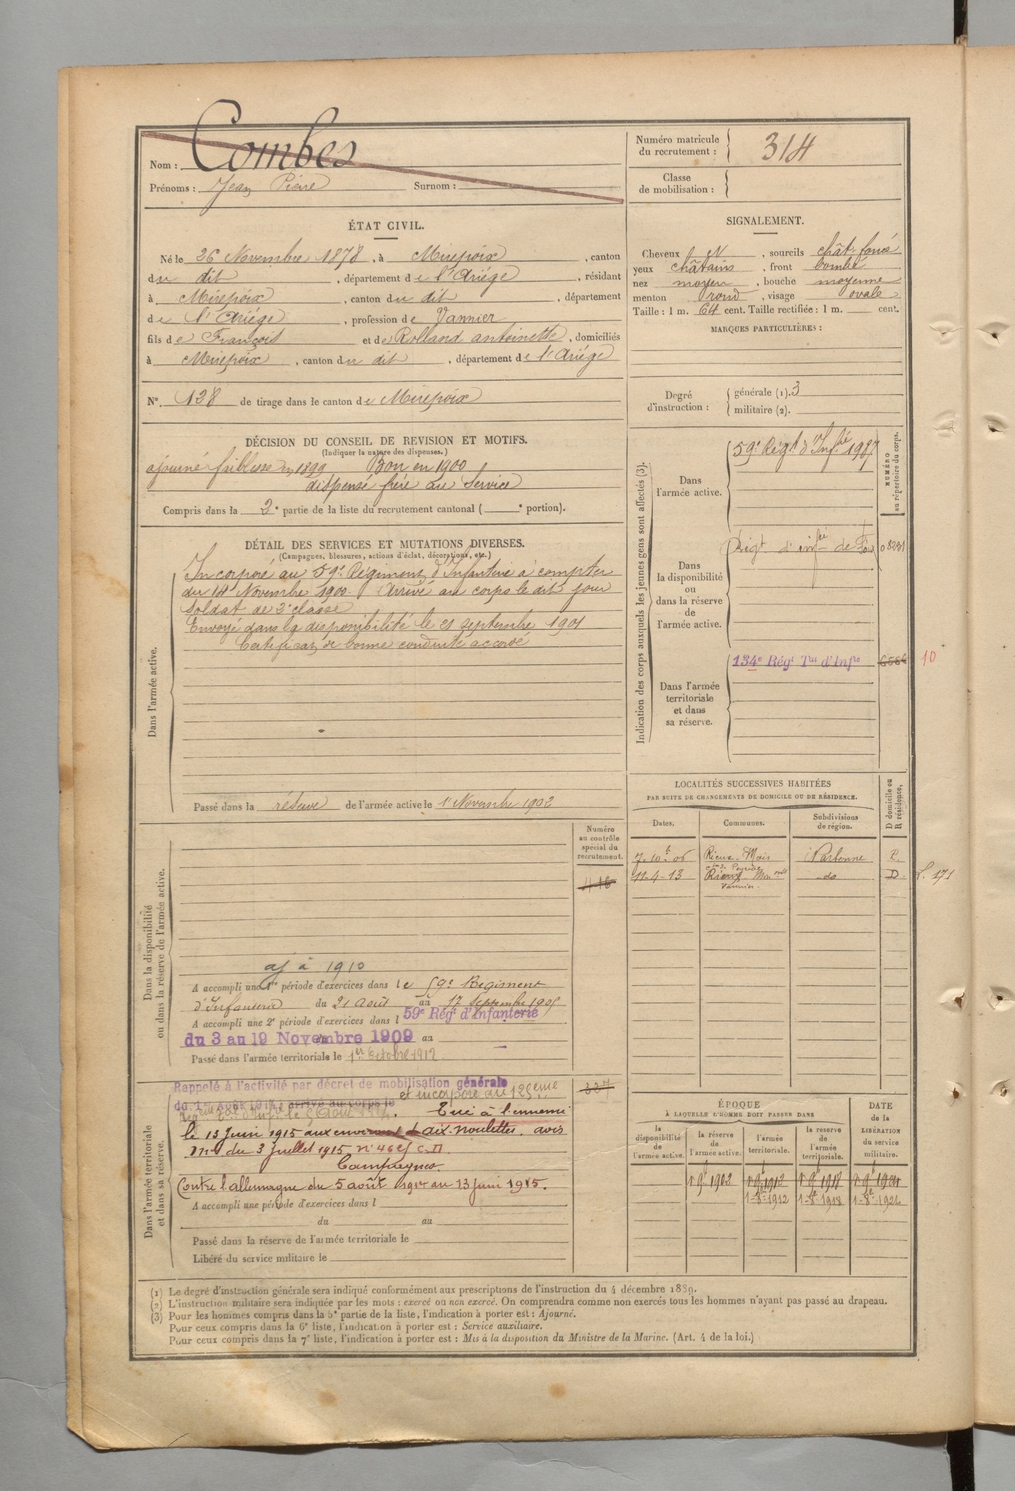 Nom : Combes
Prénoms : Jean Pierre Surnom :
Numéro matricule du recrutement : 314
Classe de mobilisation :
ÉTAT CIVIL.
Né le 26 Novembre 1878, à Mirepoix, canton
du dit, département de l'Ariége, résidant
à Mirepoix, canton du dit, département
de l'Ariége, profession de Vannier
fils de François et de Rolland antoinette, domiciliés
à Mirepoix, canton du dit, département de l'Ariége
N° 138 de tirage dans le canton de Mirepoix
SIGNALEMENT.
Cheveux N, sourcils chât foncé
yeux châtains, front bombé
nez moyen, bouche moyenne
menton rond, visage ovale
Taille : 1 m. 64 cent. Taille rectifiée : 1 m. cent.
MARQUES PARTICULIÈRES :
Degré d'instruction : générale (1). 3
militaire (2).
DÉCISION DU CONSEIL DE REVISION ET MOTIFS.
(Indiquer la nature des dispenses.)
ajourné faiblesse en 1899 Bon en 1900
dispensé frère au Service
Compris dans la 2e partie de la liste du recrutement cantonal ( e portion).
DÉTAIL DES SERVICES ET MUTATIONS DIVERSES.
(Campagnes, blessures, actions d'éclat, décorations, etc.)
Dans l'armée active.
Incorporé au 59e Régiment d'Infanterie à compter
du 14 Novembre 1900. Arrivé au corps le dit jour
Soldat de 2e classe
Envoyé dans la disponibilité le 21 septembre 1901
Certificat de bonne conduite accordé
Passé dans la réserve de l'armée active le 1 Novembre 1902
Indication des corps auxquels les jeunes gens sont affectés (3).
NUMÉRO au répertoire du corps.
Dans l'armée active.
59e Régt d'Infie 1987
Dans la disponibilité ou dans la réserve de l'armée active.
Régt d'infie de Foix
Dans l'armée territoriale et dans sa réserve.
134e Régt Tal d'Infie 10
LOCALITÉS SUCCESSIVES HABITÉES
PAR SUITE DE CHANGEMENTS DE DOMICILE OU DE RÉSIDENCE.
Dates. Communes. Subdivisions de région. D domicile ou R résidence.
7-10-06 Rieux-Mois Narbonne R.
11-4-13 Rieux Min do D.
Vannier
Dans la disponibilité ou dans la réserve de l'armée active.
Numéro au contrôle spécial du recrutement.
aj à 1910
A accompli une 1re période d'exercices dans le 59e Regiment
d'Infanterie du 21 Aout au 17 Septembre 1905
A accompli une 2e période d'exercices dans l 59e Régt d'Infanterie
du 3 au 19 Novembre 1909 au
Passé dans l'armée territoriale le 1er Octobre 1912
Dans l'armée territoriale et dans sa réserve.
337
Rappelé à l'activité par décret de mobilisation générale
du 1er Août 1914 arrivé au corps le et incorporé au 125eme
Tué à l'ennemi
le 13 Juin 1915 aux environs d'aix-noulettes. avis
mel du 3 Juillet 1915 n°
Campagnes
Contre l'allemagne du 5 août 1914 au 13 juin 1915.
A accompli une période d'exercices dans l
du au
Passé dans la réserve de l'armée territoriale le
Libéré du service militaire le
ÉPOQUE
À LAQUELLE L'HOMME DOIT PASSER DANS
DATE de la LIBÉRATION du service militaire.
la disponibilité de l'armée active. la réserve de l'armée active. l'armée territoriale. la réserve de l'armée territoriale.
1-9e 1902 1-9e 1912 1-9e 1918
1-8e 1912 1-8e 1918 1-8e 1924
(1) Le degré d'instruction générale sera indiqué conformément aux prescriptions de l'instruction du 4 décembre 1889.
(2) L'instruction militaire sera indiquée par les mots : exercé ou non exercé. On comprendra comme non exercés tous les hommes n'ayant pas passé au drapeau.
(3) Pour les hommes compris dans la 5e partie de la liste, l'indication à porter est : Ajourné.
Pour ceux compris dans la 6e liste, l'indication à porter est : Service auxiliaire.
Pour ceux compris dans la 7e liste, l'indication à porter est : Mis à la disposition du Ministre de la Marine. (Art. 4 de la loi.)